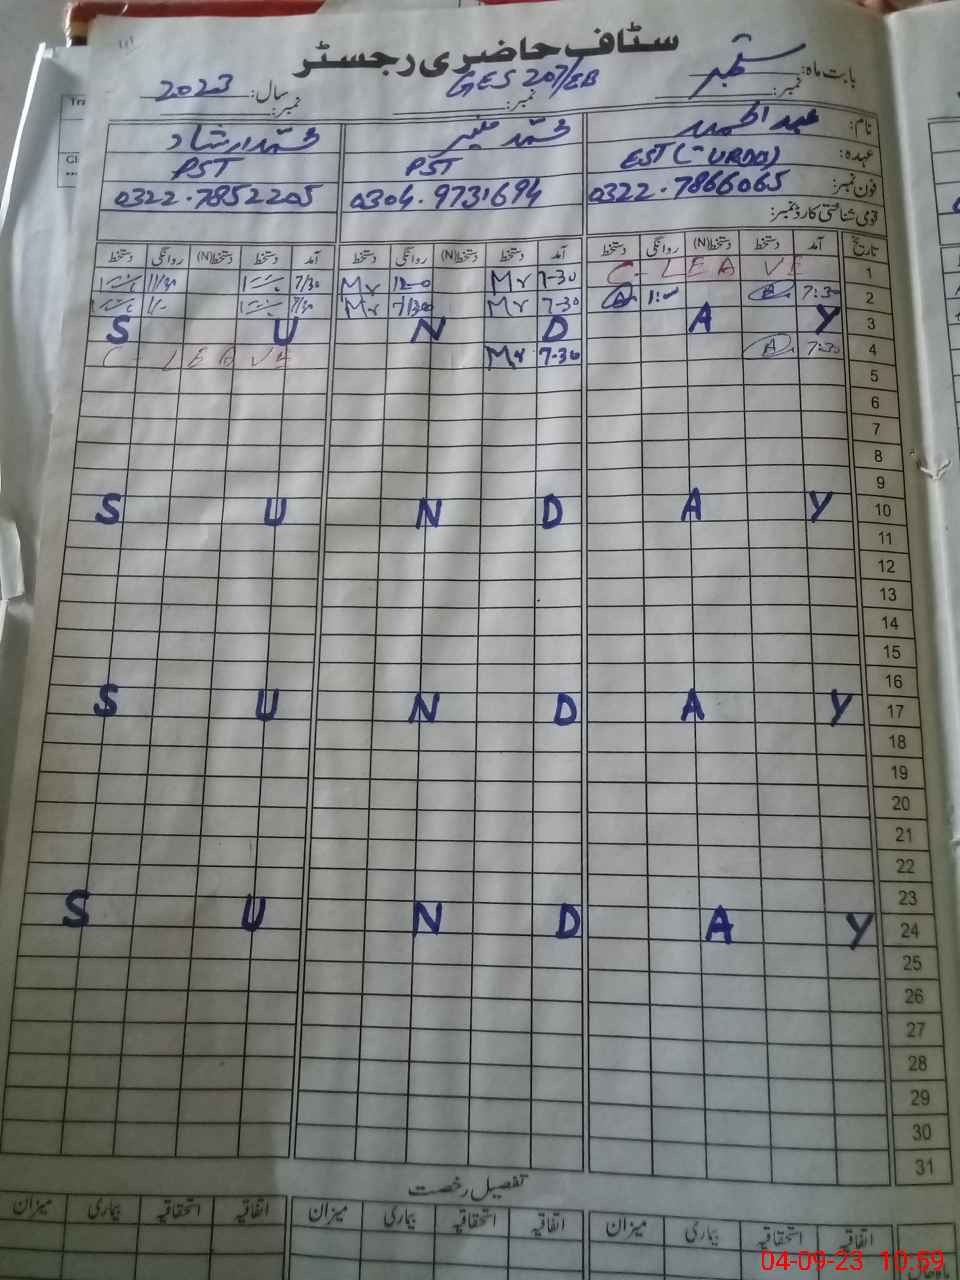 سٹاف حاضری رجسٹر
بابت ماہ: ستمبر GES 207/EB سال: 2023
نمبر: نمبر: نمبر:
نام: محمد منیر محمد ارشاد
عہدہ: EST (URDU) PST PST
فون نمبر: 0322-7866065 0304-9731694 0322-7852205
قومی شناختی کارڈ نمبر:
تاریخ آمد دستخط دستخط(N) روانگی دستخط آمد دستخط دستخط(N) روانگی دستخط آمد دستخط دستخط(N) روانگی دستخط
1 C-LEAVE 7-30 Mr Mr 7/30 11/30
2 7:30 1:00 7-30 Mr Mr
3 S U N D A Y
4 7:30 7-30 Mr C-LEAVE
5
6
7
8
9
10 S U N D A Y
11
12
13
14
15
16
17 S U N D A Y
18
19
20
21
22
23
24 S U N D A Y
25
26
27
28
29
30
31
تفصیل رخصت
اتفاقیہ استحقاقیہ بیماری میزان اتفاقیہ استحقاقیہ بیماری میزان اتفاقیہ استحقاقیہ بیماری میزان
04-09-23 10:59